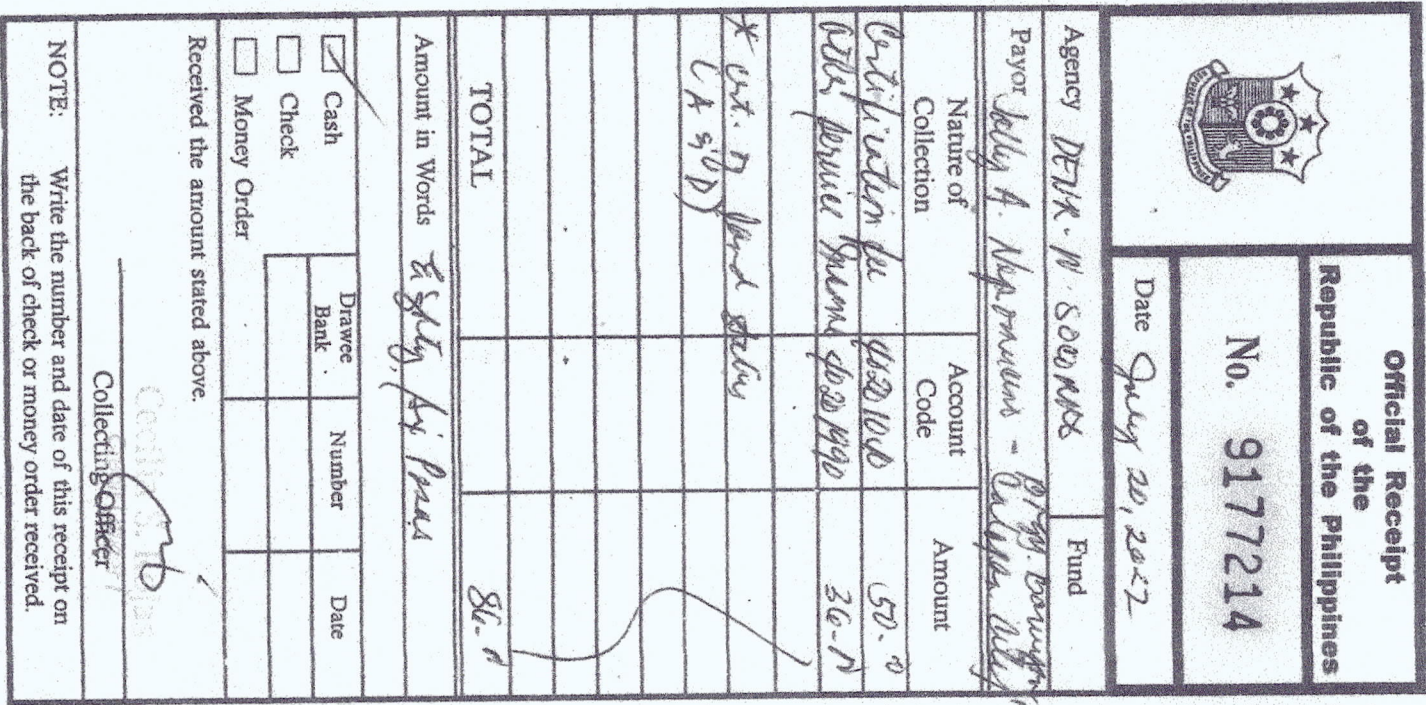 Official Receipt
of the
Republic of the Philippines
No. 9177214
Date July 20, 2022
Agency DENR - IV Socorro
Fund
Payor A. Nepomuceno -
Calapan City
Nature of Collection Account Code Amount
Certification fee 4020104 50.-
Other Service Income 4020199 36.-
* cert. of land status
(A & D)
TOTAL 86.-
Amount in Words Eighty six Pesos
Cash
Check
Money Order
Drawee Bank Number Date
Received the amount stated above.
Collecting Officer
NOTE: Write the number and date of this receipt on
the back of check or money order received.